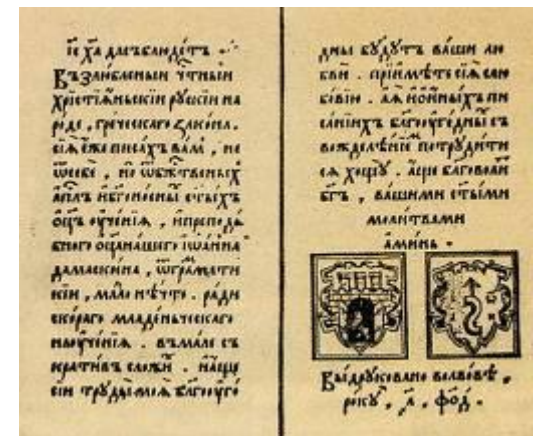 і҃с х҃а да съблюдетъ
Възлюбленыи ч҃тныи
хрⷭ҇тїа́ньскїи руⷭ҇скїи на
роде, греческаго закона.
сїѧ́ е́же писа́хъ ва́мъ, не
ѿсебе, но ѿбжⷭ҇твеныхъ
а҆пⷭ҇лъ ибг҃оносныⷯ ст҃ыхъ
ѻц҃ъ оуче́нїѧ, ипреподо́
бного ѻц҃а на́шего їѡа́нна
дамаски́на, ѿгра́мати
кїи, ма́ло нѣ́что. ра́ди
ско́раго младе́ньческаго
наоуче́нїѧ. въма́ле съ
крати́въ сложи́х. и҆а́ще
сїи труды̀ моѧ̀ бл҃гооуго́
дны бу́дутъ ва́ши лю
бви. прїимѣ́те сїѧ̀ слю
бо́вїю. а҆ѧ̀ и҆ѡи҆ны́хъ пи
са́нїихъ бл҃гооуго́дныⷯ съ
вожделѣ́нїеⷨ потруди́ти
сѧ хощу̀. а҆́ще бл҃говоли́т
бг҃ъ, ва́шими ст҃ы́ми
моли́твами
а҆ми́нь.
Выдруковано волвовѣ,
ро́ку, ҂а҃. ф҃о҃д҃.